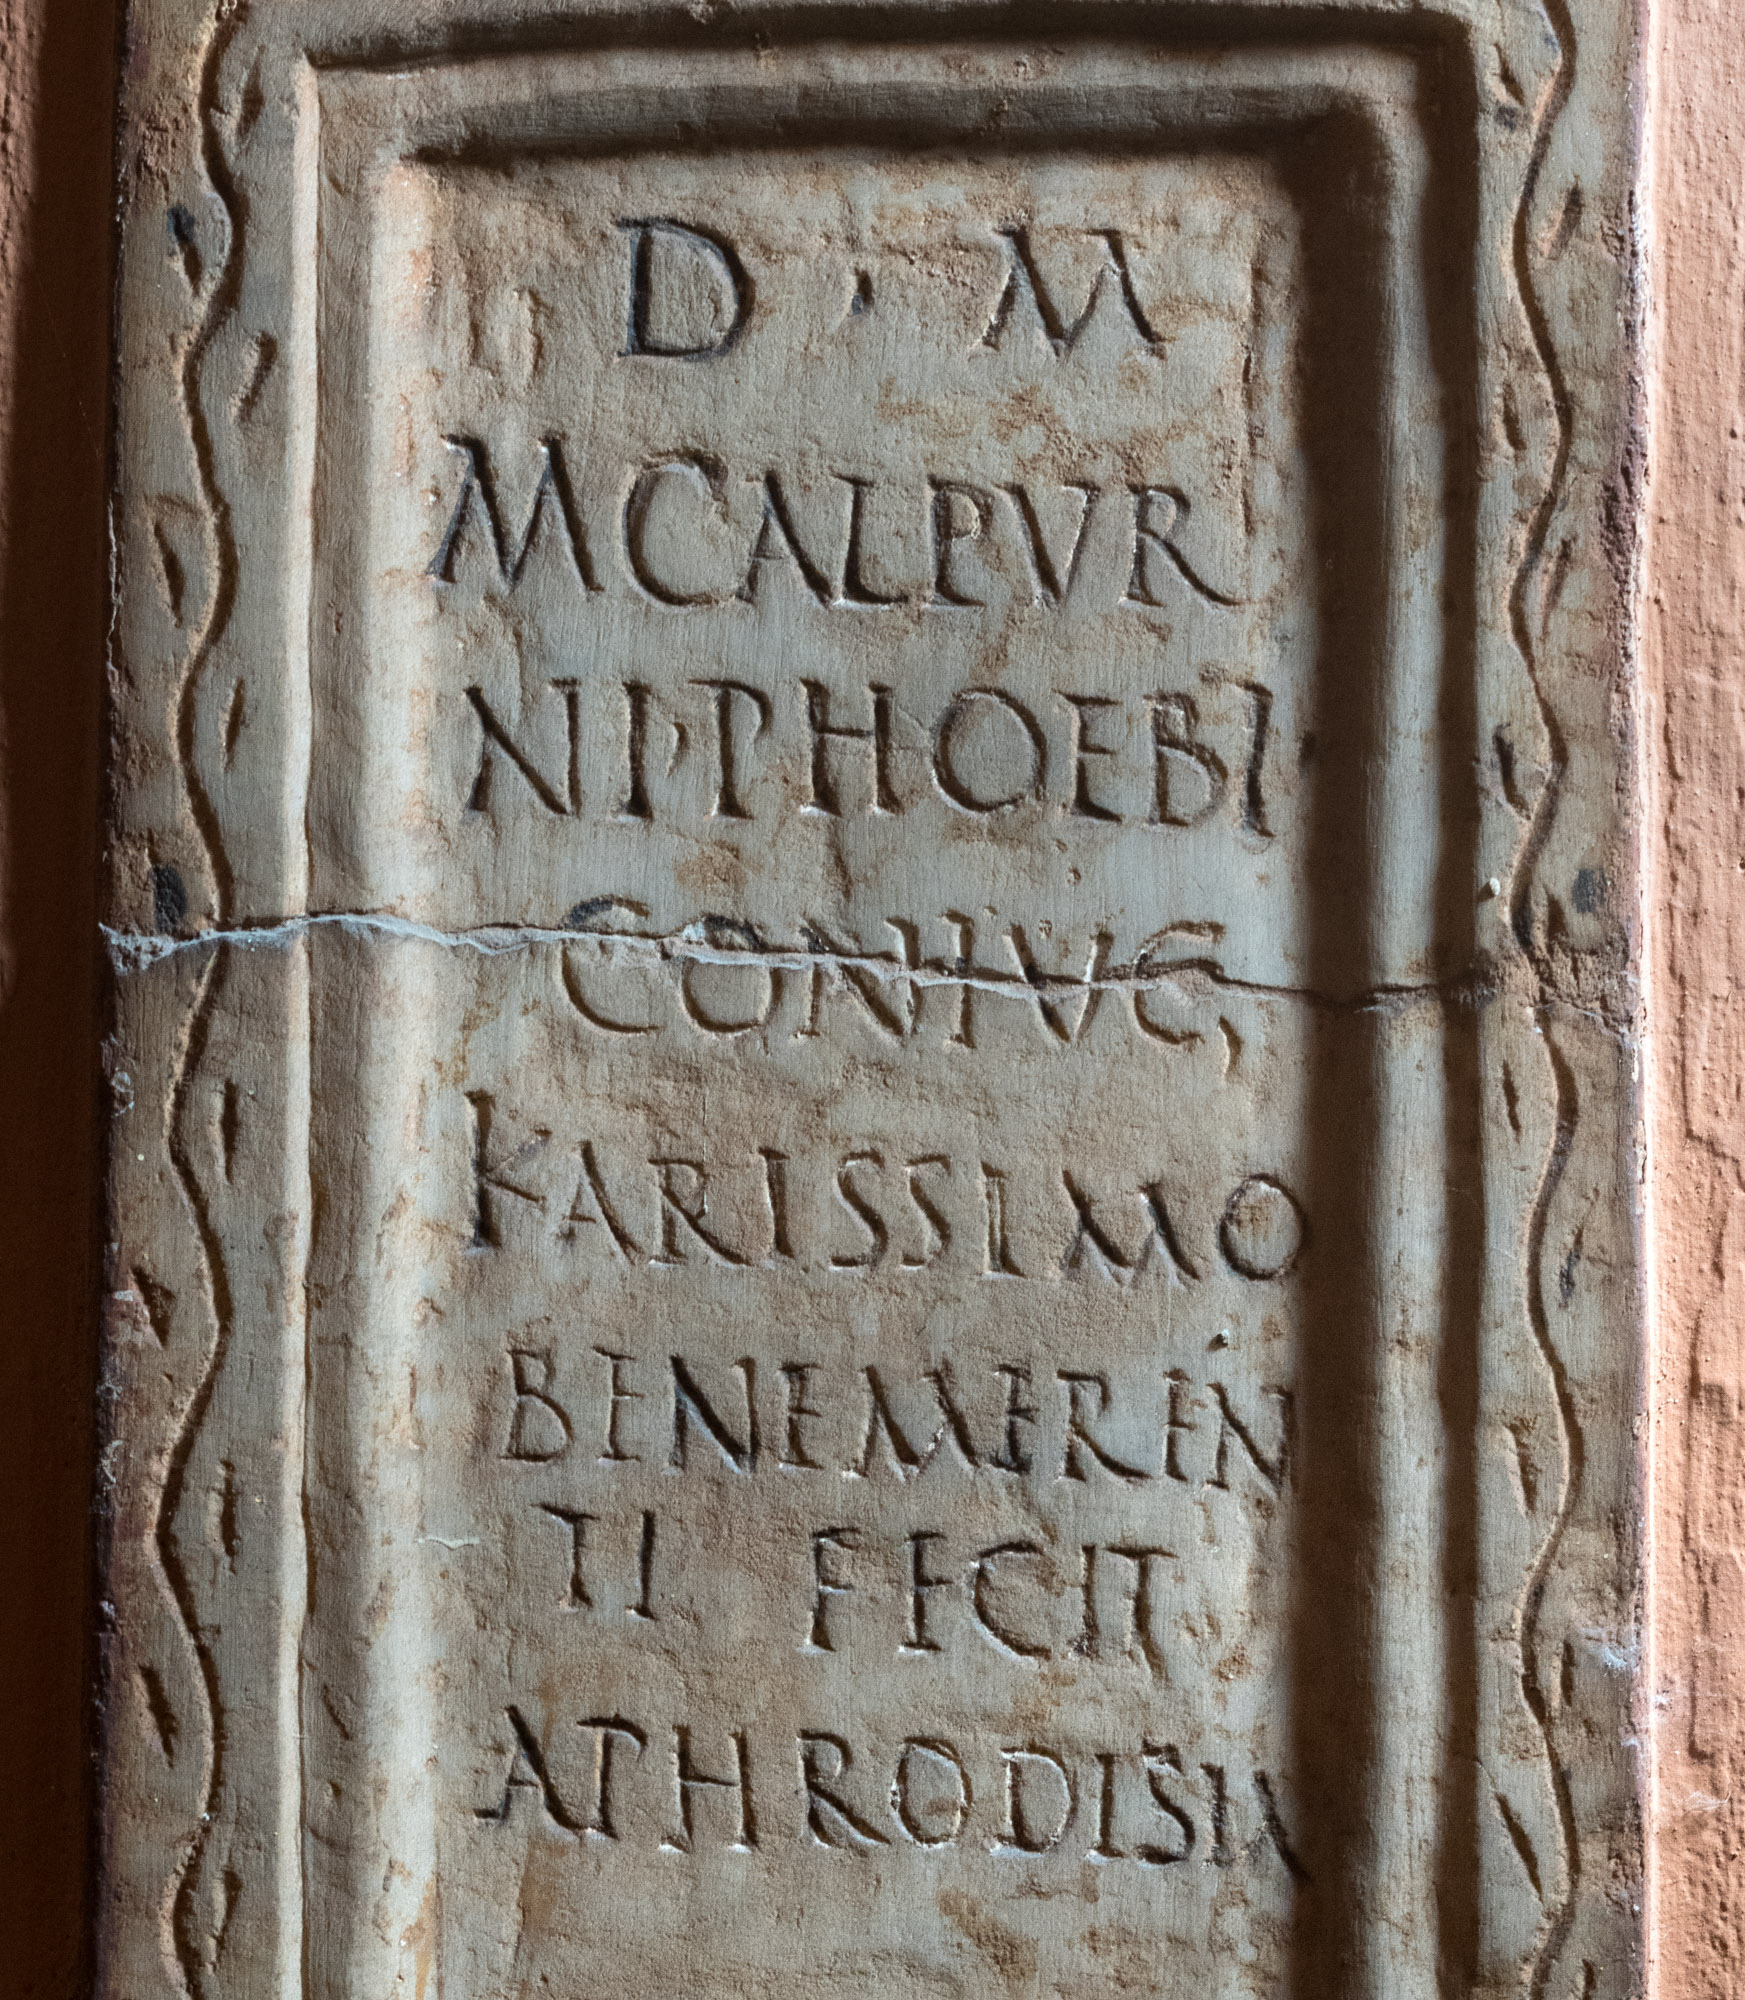 D · M
M CALPVR
NI · PHOEBI
CONIVG
KARISSIMO
BENEMEREN
TI FECIT
APHRODISIA